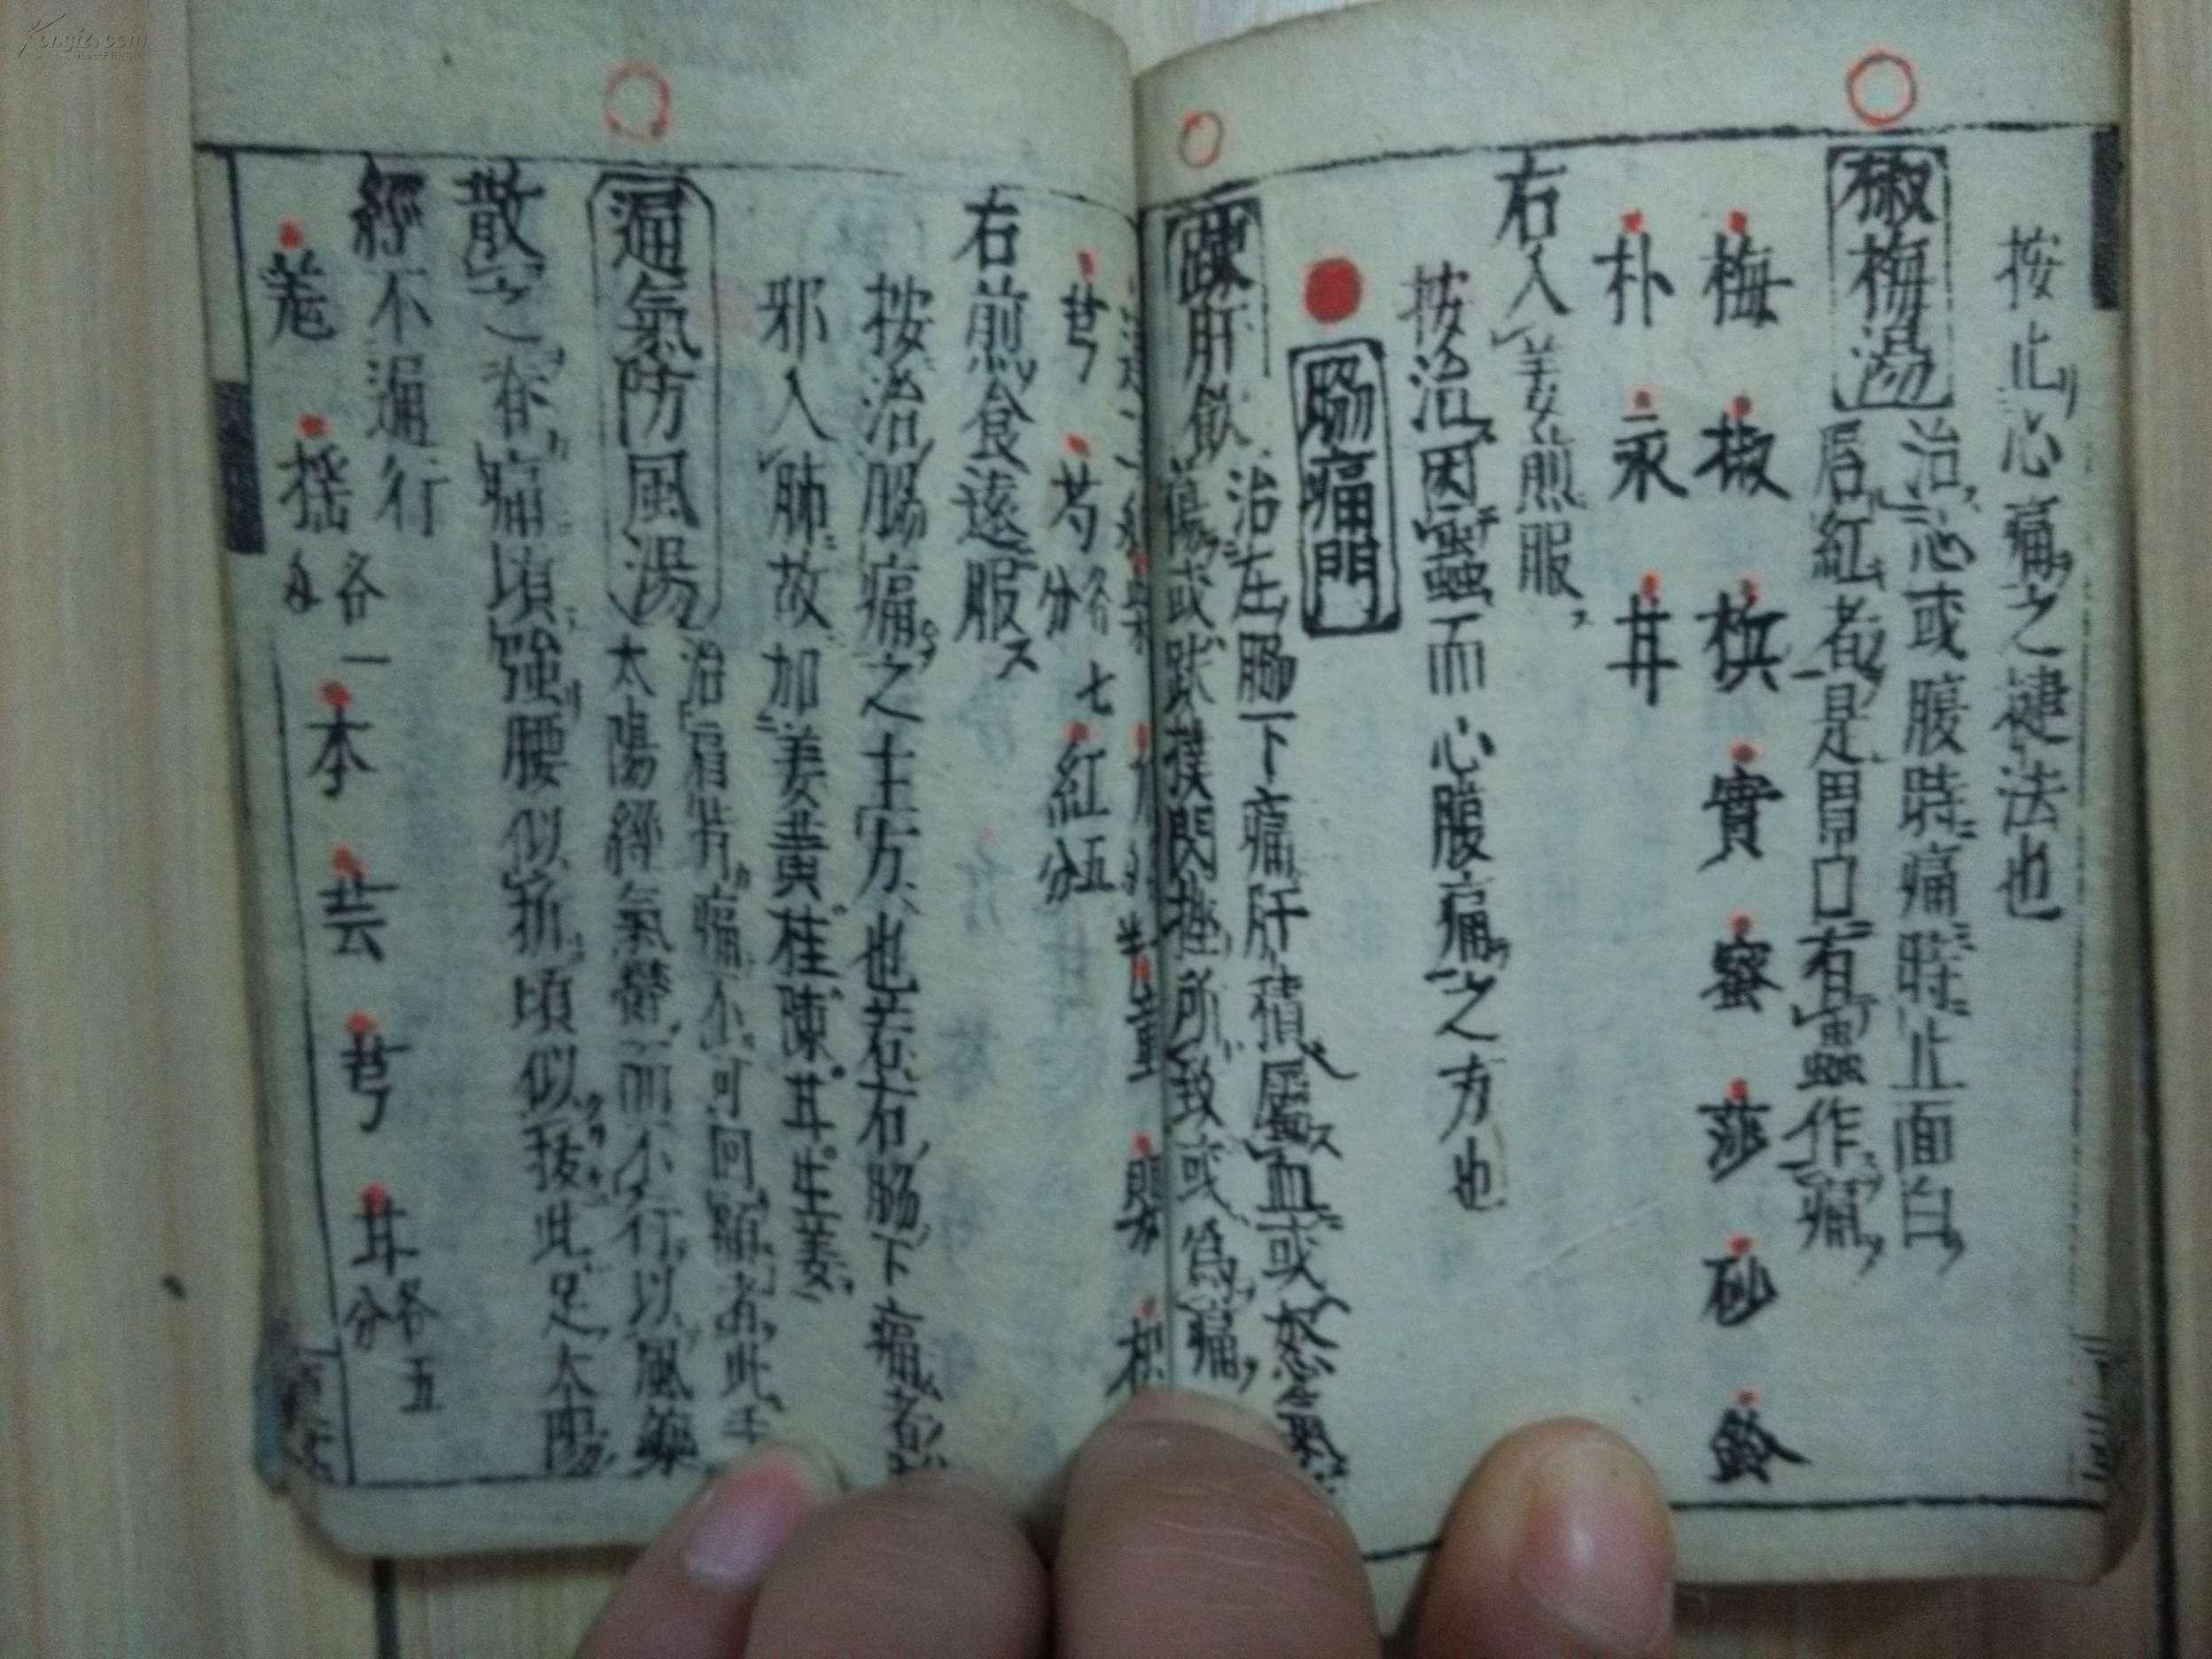 按止心痛之捷法也
椒梅湯
治心或腹時痛時止面白
唇紅者是胃口有蟲作痛
梅 椒 檳 實 蜜 莎 砂 鈴
朴 永 甘
右入姜煎服
按治因蟲而心腹痛之方也
脇痛門
疎肝飲
治左脇下痛肝積屬血或怒氣
傷或跌撲閃挫所致或爲痛
芎 芍 各七分 紅 五分
右煎食遠服
按治脇痛之主方也若右脇下痛者
邪入肺故加姜黄桂陳甘生姜
通氣防風湯
治肩背痛不可回顧者此手
太陽經氣欝而不行以風藥
散之脊痛頃強腰似折頃似拔此足太陽
經不通行
羗 㨱 各一 本 芸 芎 甘 各五分